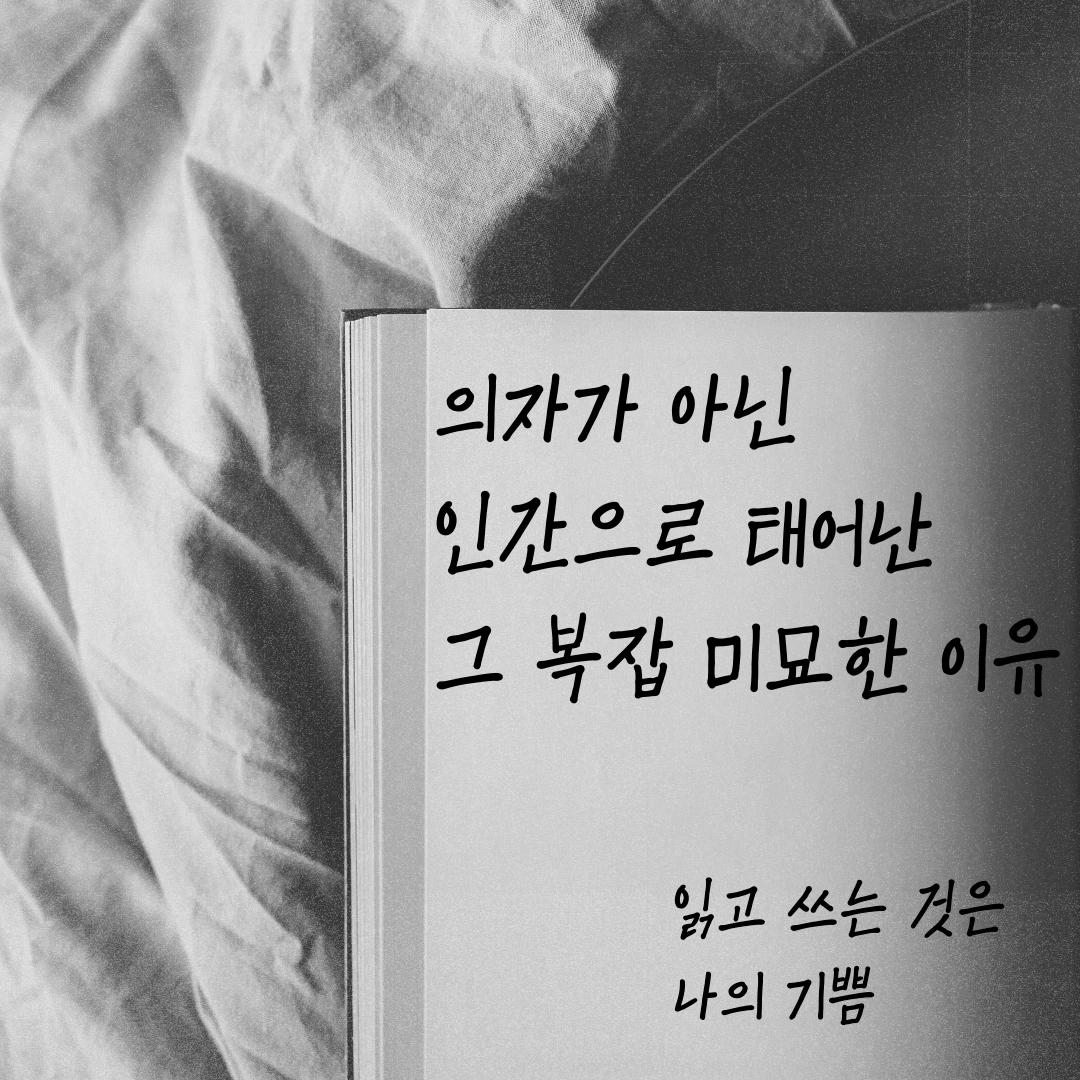 의자가 아닌
인간으로 태어난
그 복잡 미묘한 이유
읽고 쓰는 것은
나의 기쁨